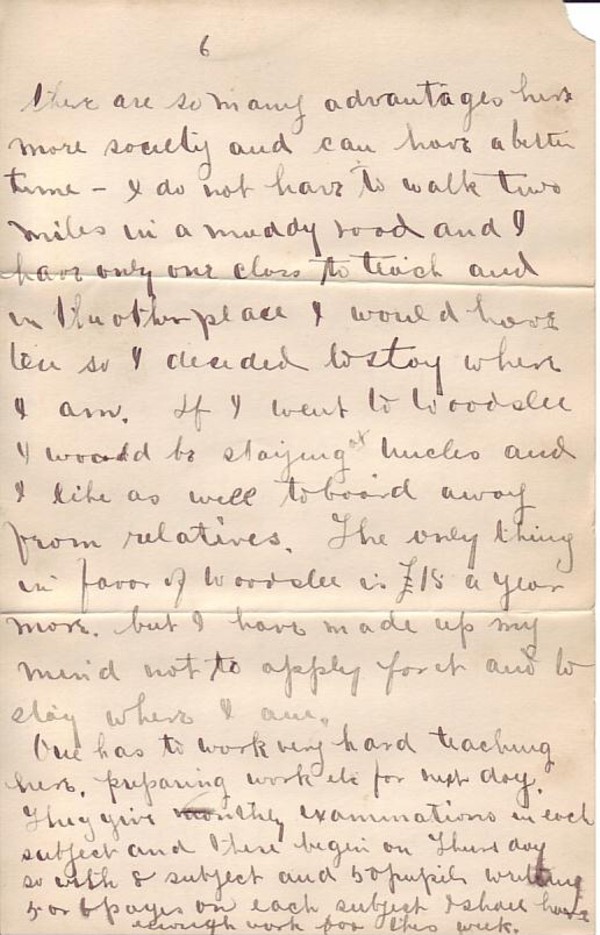 6
there are so many advantages here
more society and can have a better
time - I do not have to walk two
miles in a muddy road and I
have only one class to teach and
in the other place I would have
ten so I decided to stay where
I am. If I went to Woodslee
I would be staying at Uncles and
I like as well to board away
from relatives. The only thing
in favor of Woodslee is
a year
more. but I have made up my
mind not to apply for it and to
stay where I am.
One has to work very hard teaching
here. preparing work etc for next day.
They give monthly examinations in each
subject and these begin on Thursday
so with 8 subject and 50 pupils writing
5 or 6 pages on each subject I shall have
enough work for this week.